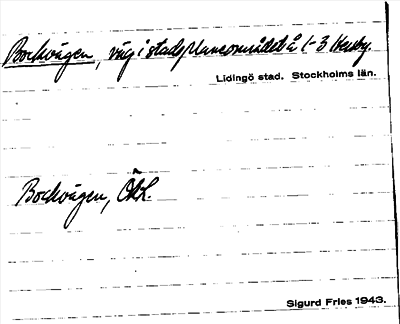 Bockvägen, väg i stadsplaneområdet å 1-3 Hersby.
Lidingö stad. Stockholms län.
Bockvägen, ÖAK.
Sigurd Fries 1943.